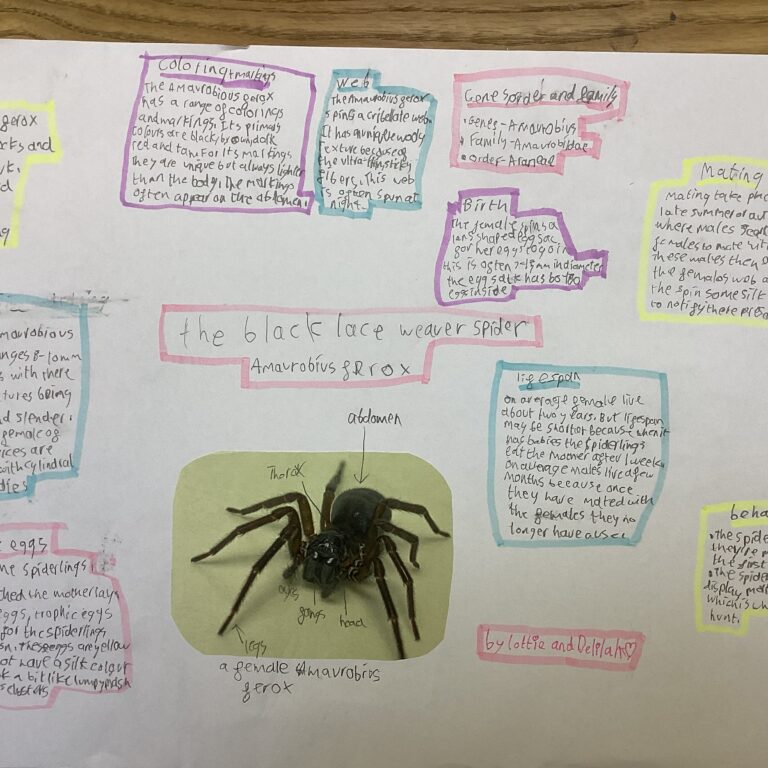 gerox
Coloring+markings
The Amaurobious gerox
has a range of colorings
and markings. Its primary
colours are black, brown, dark
red and tan. For its markings
they are unique but always lighter
than the body. The markings
often appear on the abdomen.
Web
The Amaurobius gerox
spins a cribelate web.
It has a unique wooly
texture because of
the ultra thin sticky
fibers. This web
is often spun at
night.
Genes order and family
• Genes - Amaurobius
• Family - Amaurobiidae
• Order - Araneae
Birth
the female spins a
lens shaped egg sac
for her eggs to go in
this is often 7-15mm in diameter
the egg
eggs inside
Mating
Mating take
late summer or
where males
females to mate
These males then
the females web
the spin some silk
to notify there
the black lace weaver spider
Amaurobius gerox
Amaurobious
8-10mm
with there
being
slender.
female of
are
with cylindral
lifespan
on average female live
about two years. But lifespan
may be shorter because when it
has babies the spiderlings
eat the moomer after 1 week.
on average males live a few
months because once
they have mated with
the females they no
longer have a use.
abdomen
Thorax
eyes
fangs
head
legs
a female Amaurobius
gerox
eggs
spiderlings
the mother lays
eggs, trophic eggs
for the spiderlings
These eggs are yellow
have a silk colour
a bit like lumpy
clusters
beha
• The spide
they're
the first
• The spider
display
which is
hunt.
by Lottie and Delilah♡